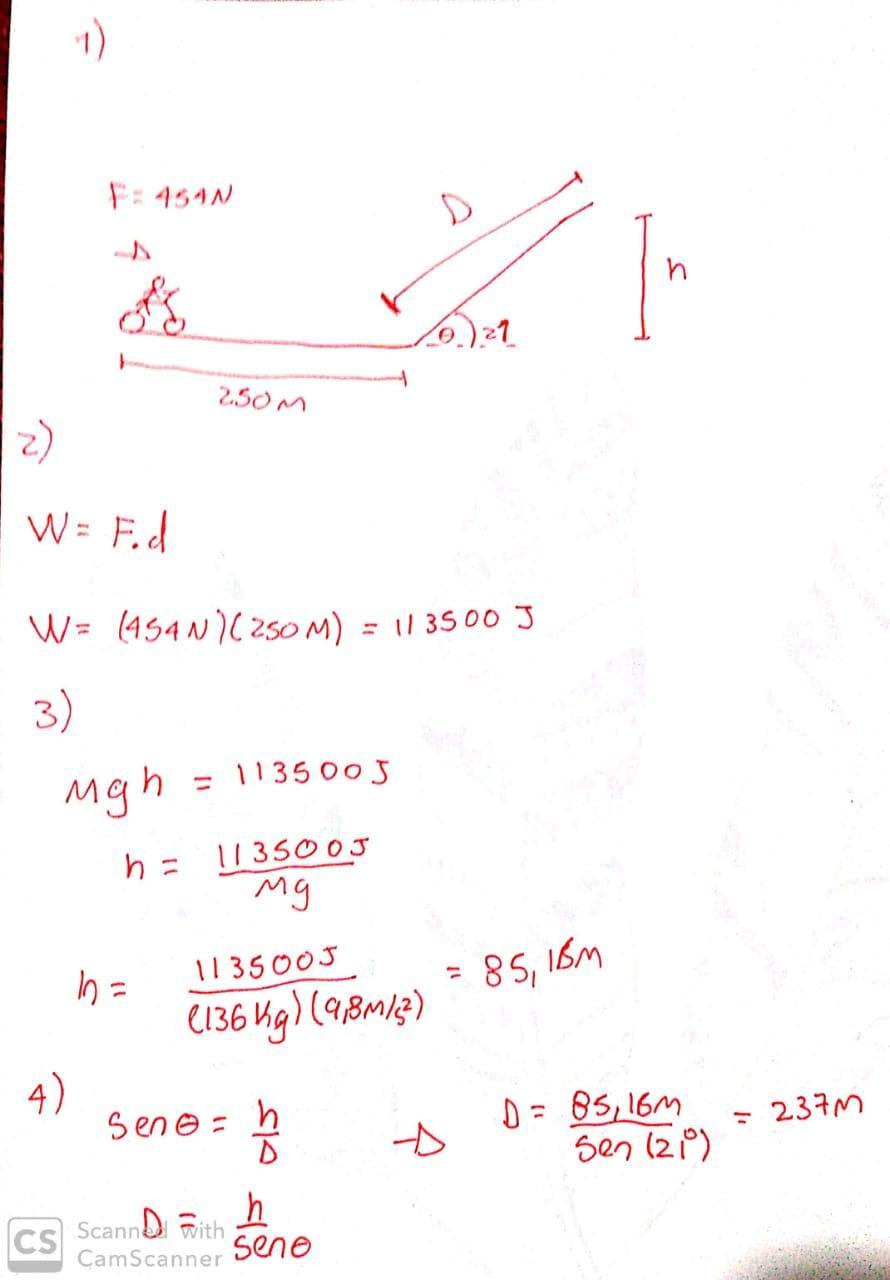 1)
F = 454N
D
h
θ 21
250M
2)
W = F.d
W = (454N)(250M) = 113500 J
3)
Mgh = 113500J
h = 113500J / Mg
h = 113500J / (136 Kg)(9,8M/s²) = 85,16M
4)
Senθ = h / D → D = 85,16M / Sen (21°) = 237M
D = h / Senθ
CS Scanned with
CamScanner